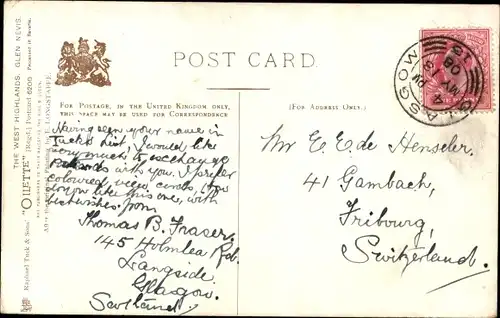 POST CARD.
FOR POSTAGE, IN THE UNITED KINGDOM ONLY,
THIS SPACE MAY BE USED FOR CORRESPONDENCE
(FOR ADDRESS ONLY.)
THE WEST HIGHLANDS. GLEN NEVIS.
Raphael Tuck & Sons' "OILETTE" [Regd.] Postcard 6200
GLASGOW
Having seen your name in
Tuck's List, I would like
very much to exchange
cards with you. I prefer
coloured view cards,
like this one, with
best wishes from
Thomas B. Fraser,
145 Holmlea Rd.
Langside,
Glasgow.
Scotland
Mr E. E. de Henseler.
41 Gambach,
Fribourg,
Switzerland.